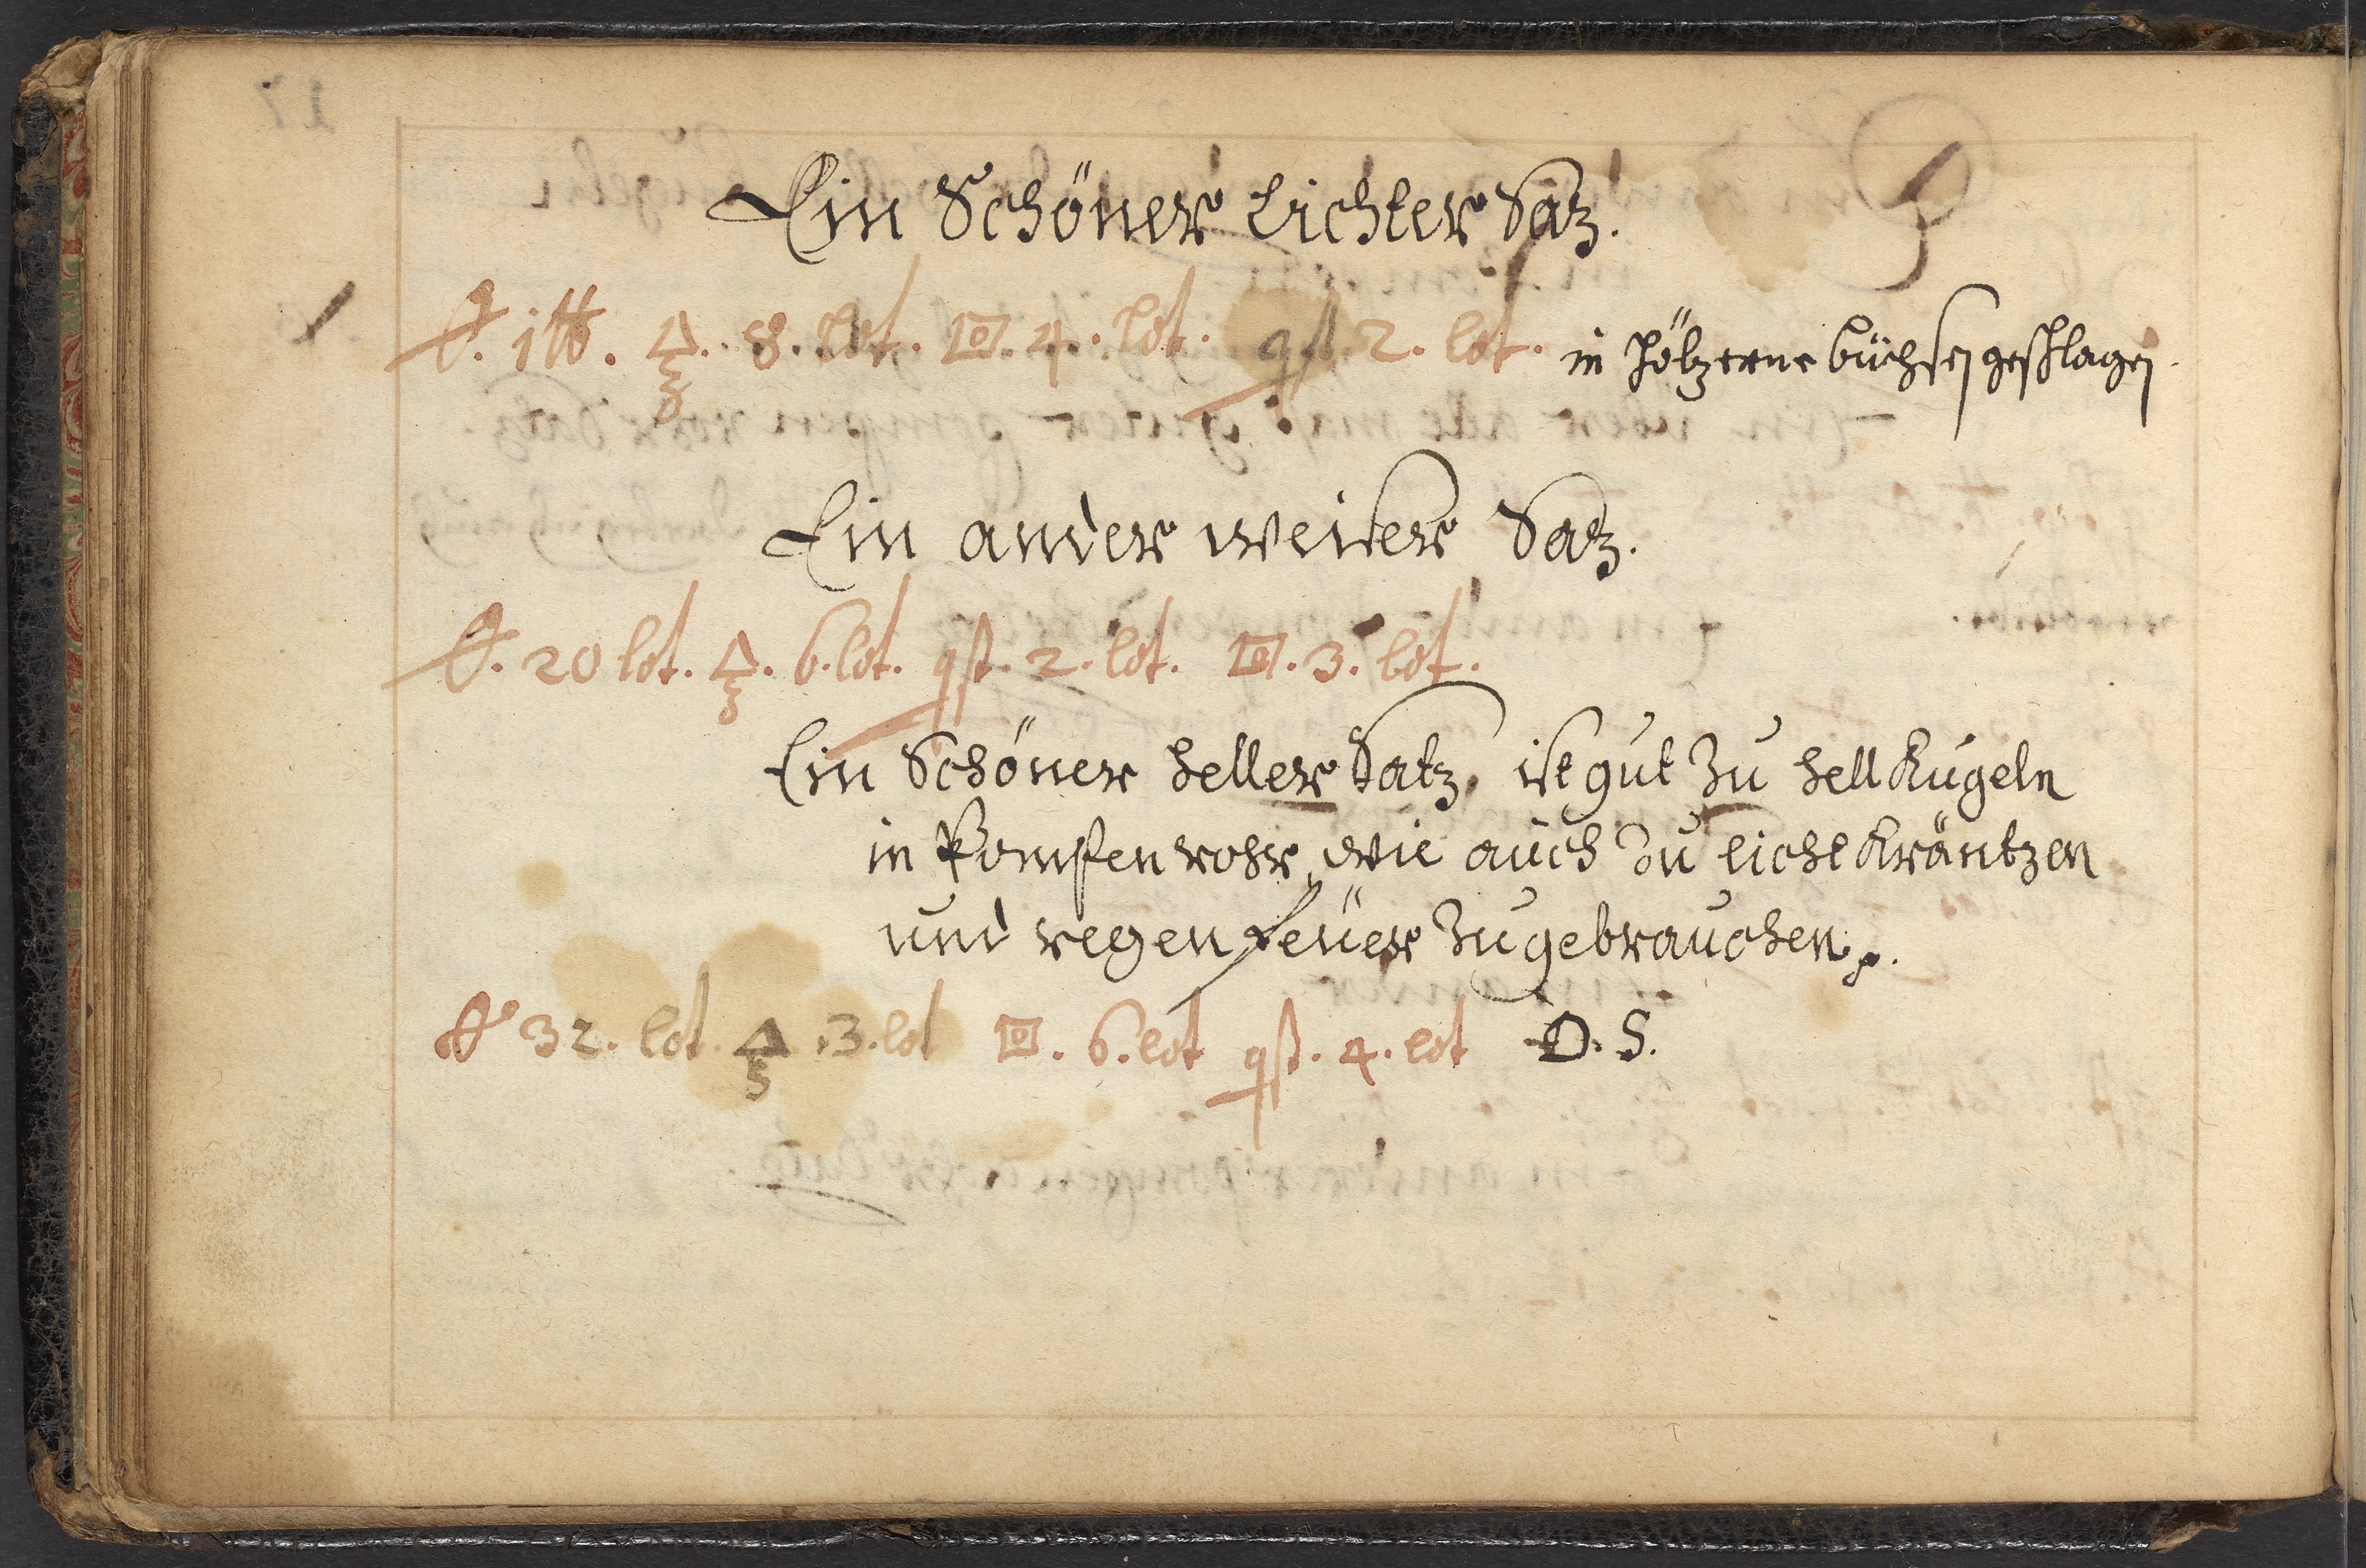 Ein Schöner Lichter Satz.
. 1 ℔. 🜍. 8. lot. . 4. lot. qst. 2. lot. in höltzerne büchsen geschlagen.
Ein ander weiser Satz.
. 20 lot. 🜍. 6. lot. qst. 2. lot. . 3. lot.
Ein Schöner heller Satz, ist gut zu hell Kugeln
in Pompen rohr, wie auch zu licht Kräntzen
und regen feüer zugebrauchen.
32. lot. 🜍. 3. lot . 6. lot qst. 4. lot D. S.